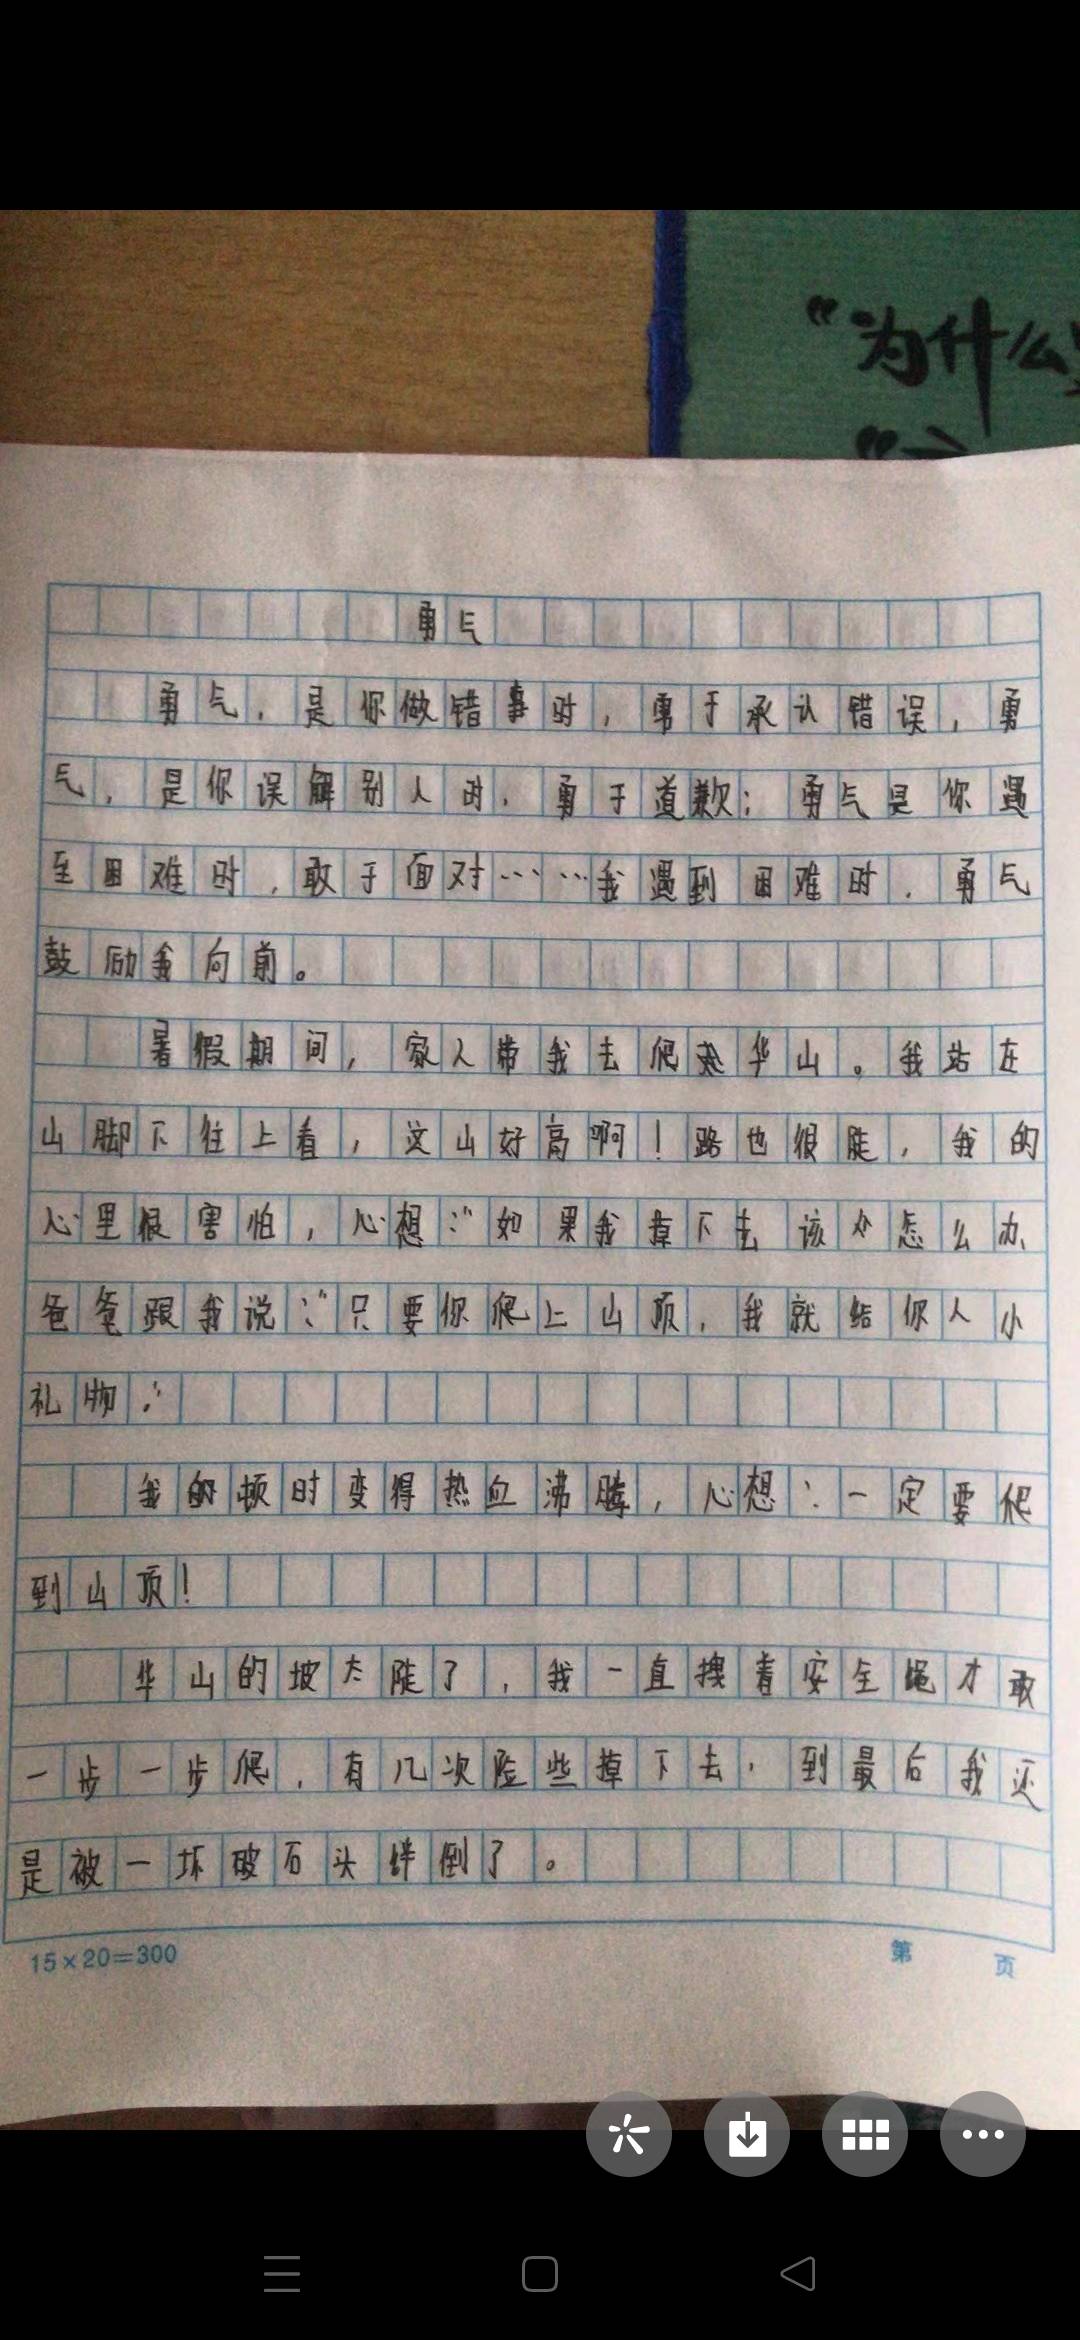 “为什么
勇气
勇气，是你做错事时，勇于承认错误，勇
气，是你误解别人时，勇于道歉；勇气是你遇
至困难时，敢于面对……我遇到困难时，勇气
鼓励我向前。
暑假期间，家人带我去爬华山。我站在
山脚下往上看，这山好高啊！路也很陡，我的
心里很害怕，心想：“如果我掉下去该怎么办、
爸爸跟我说：“只要你爬上山顶，我就给你人小
礼物.”
我顿时变得热血沸腾，心想：一定要爬
到山顶！
华山的坡太陡了，我一直拽着安全绳才敢
一步一步爬，有几次险些掉下去，到最后我还
是被一坏破石头绊倒了。
15×20=300
第 页